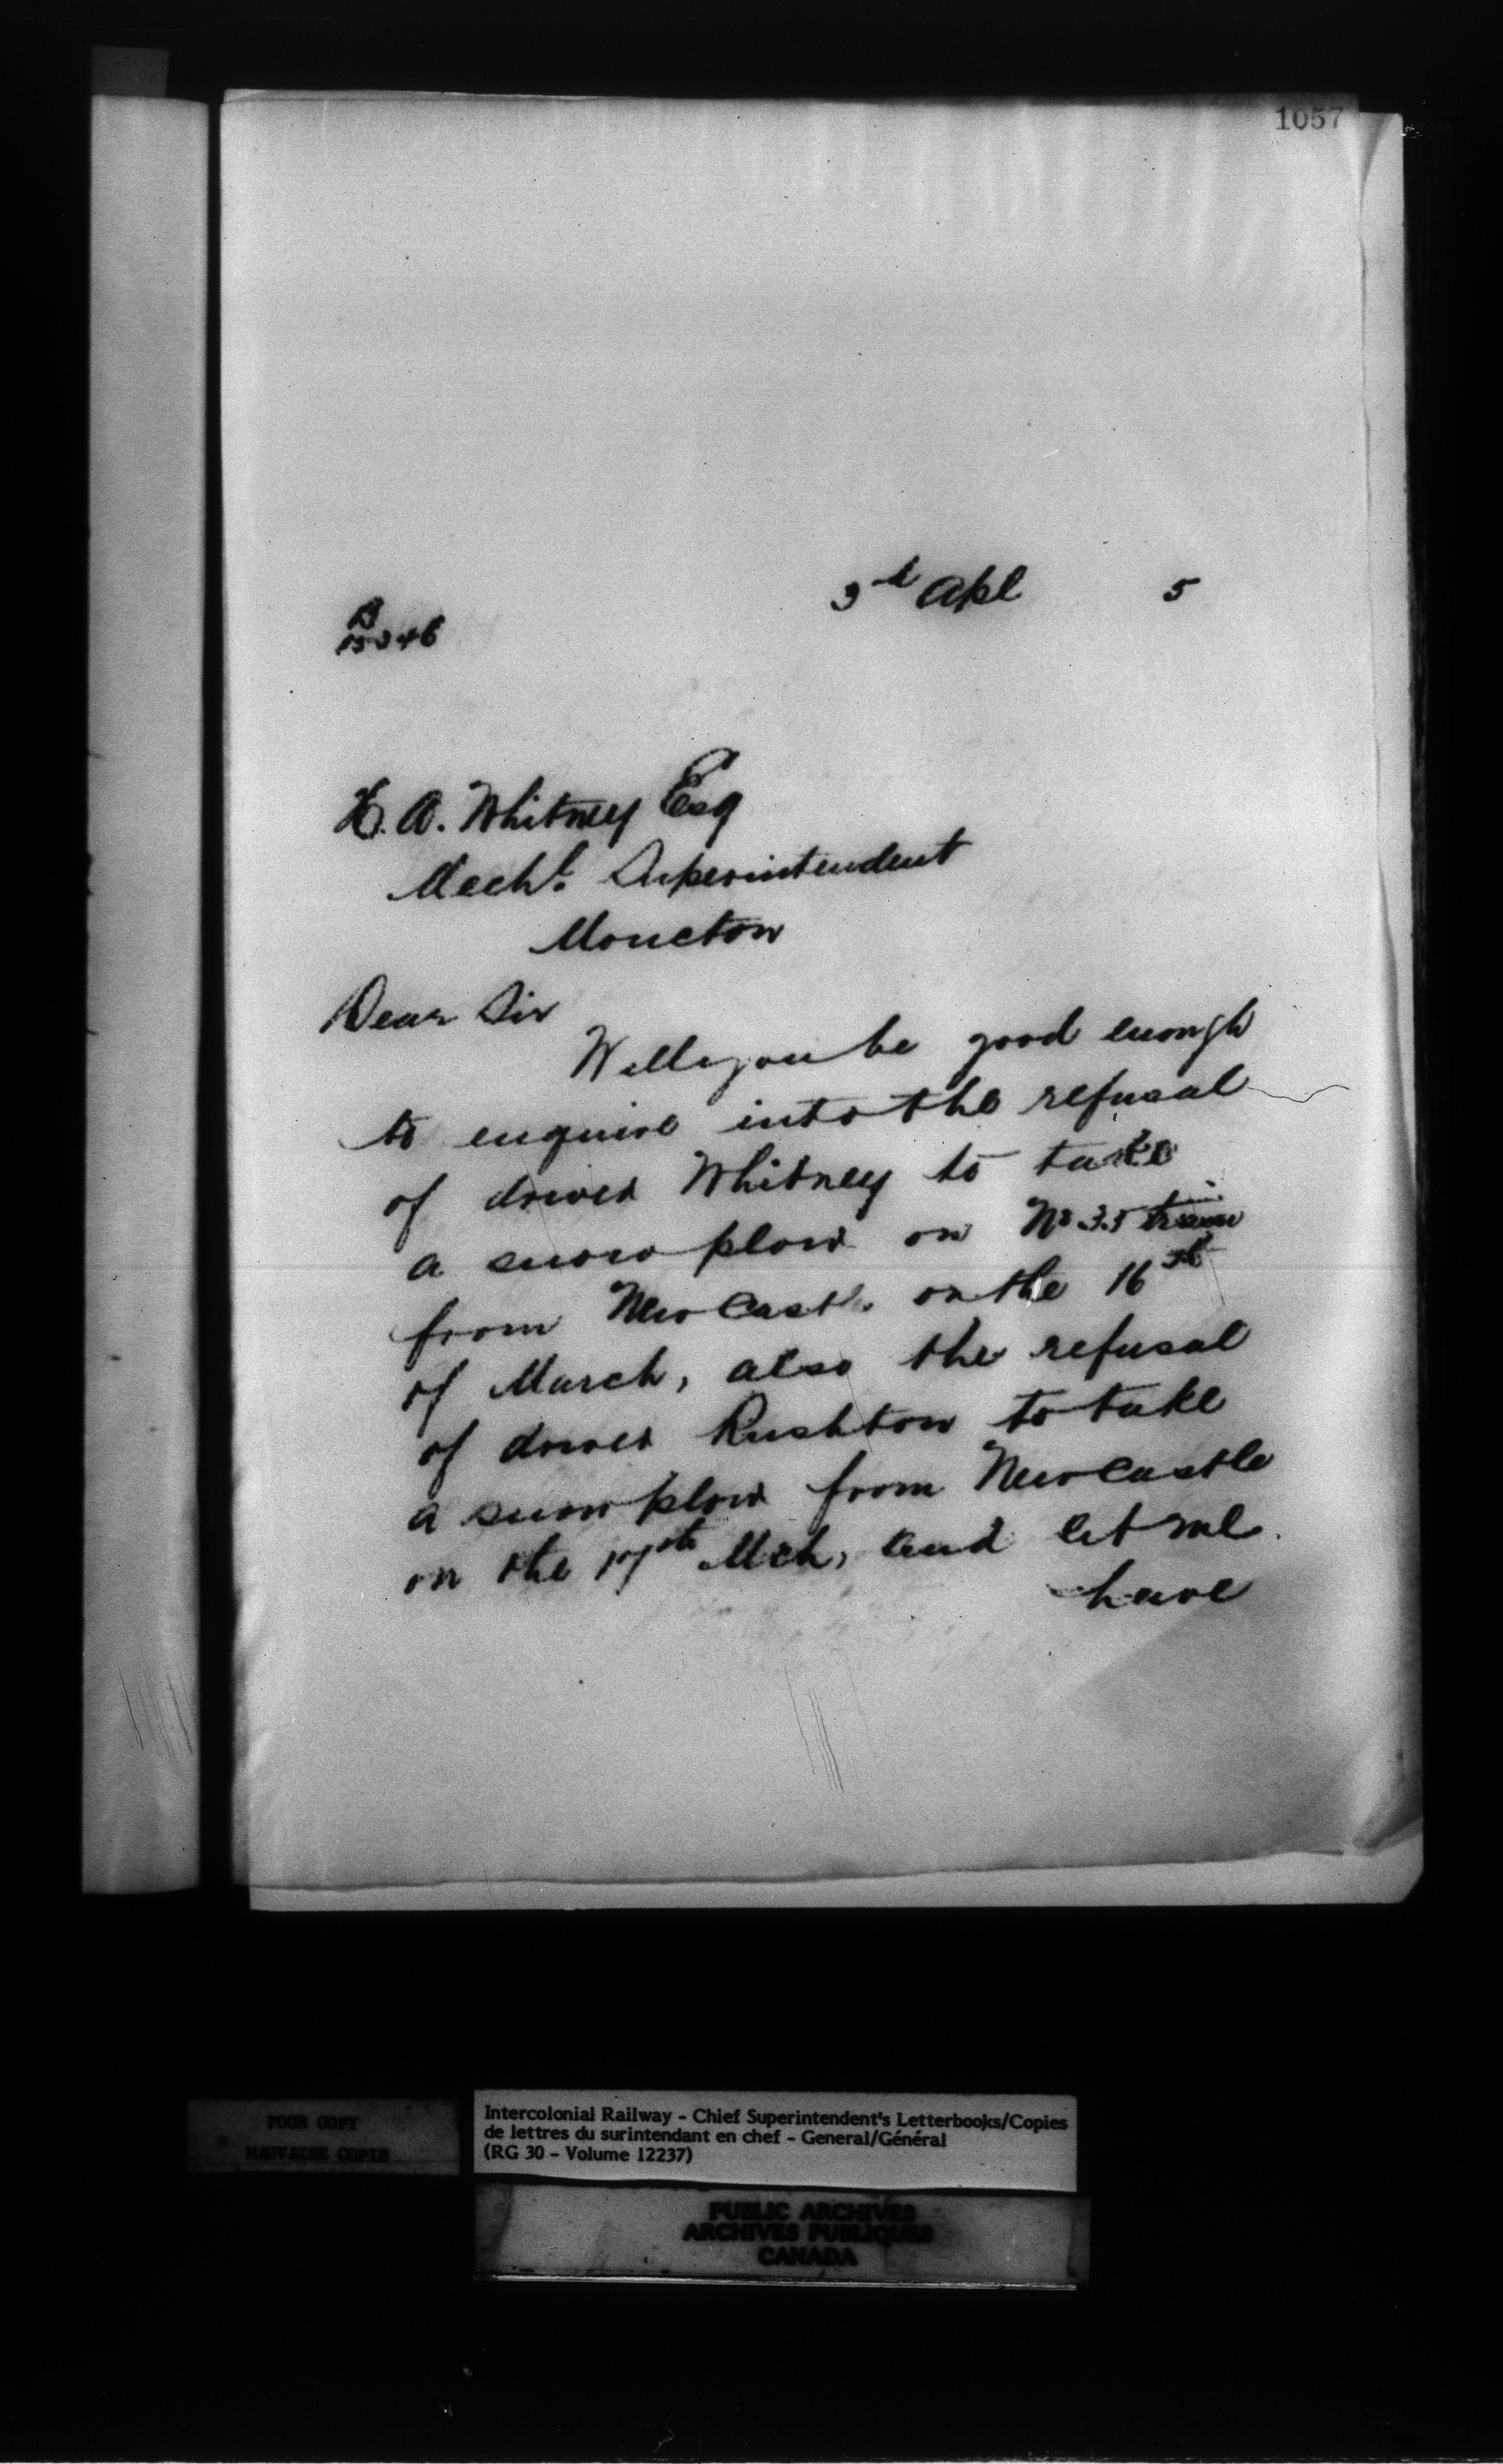 1057
3rd Apl 5
B
15346
H. A. Whitney Esq
Mechl. Superintendent
Moncton
Dear Sir
Will you be good enough
to enquire into the refusal
of driver Whitney to take
a snow plow on No 35 train
from New Castle on the 16th
of March, also the refusal
of driver Rushton to take
a snow plow from New Castle
on the 17th Mch, and let me
have
POOR COPY
MAUVAISE COPIE
Intercolonial Railway - Chief Superintendent's Letterbooks/Copies
de lettres du surintendant en chef - General/Général
(RG 30 - Volume 12237)
PUBLIC ARCHIVES
ARCHIVES PUBLIQUES
CANADA